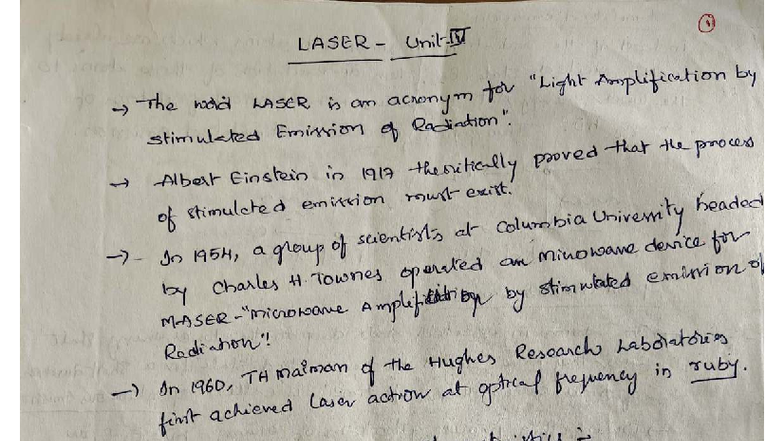 1
LASER - Unit-IV
→ The word LASER is an acronym for "Light Amplification by
stimulated Emission of Radiation".
→ Albert Einstein in 1917 theoritically proved that the process
of stimulated emission must exist.
→ In 1954, a group of scientists at Columbia University headed
by Charles H. Townes operated an microwave device for
MASER - "Microwave Amplification by stimulated emission of
Radiation"!
→ In 1960, TH maiman of the Hughes Research Laboratories
first achieved Laser action at optical frequency in ruby.